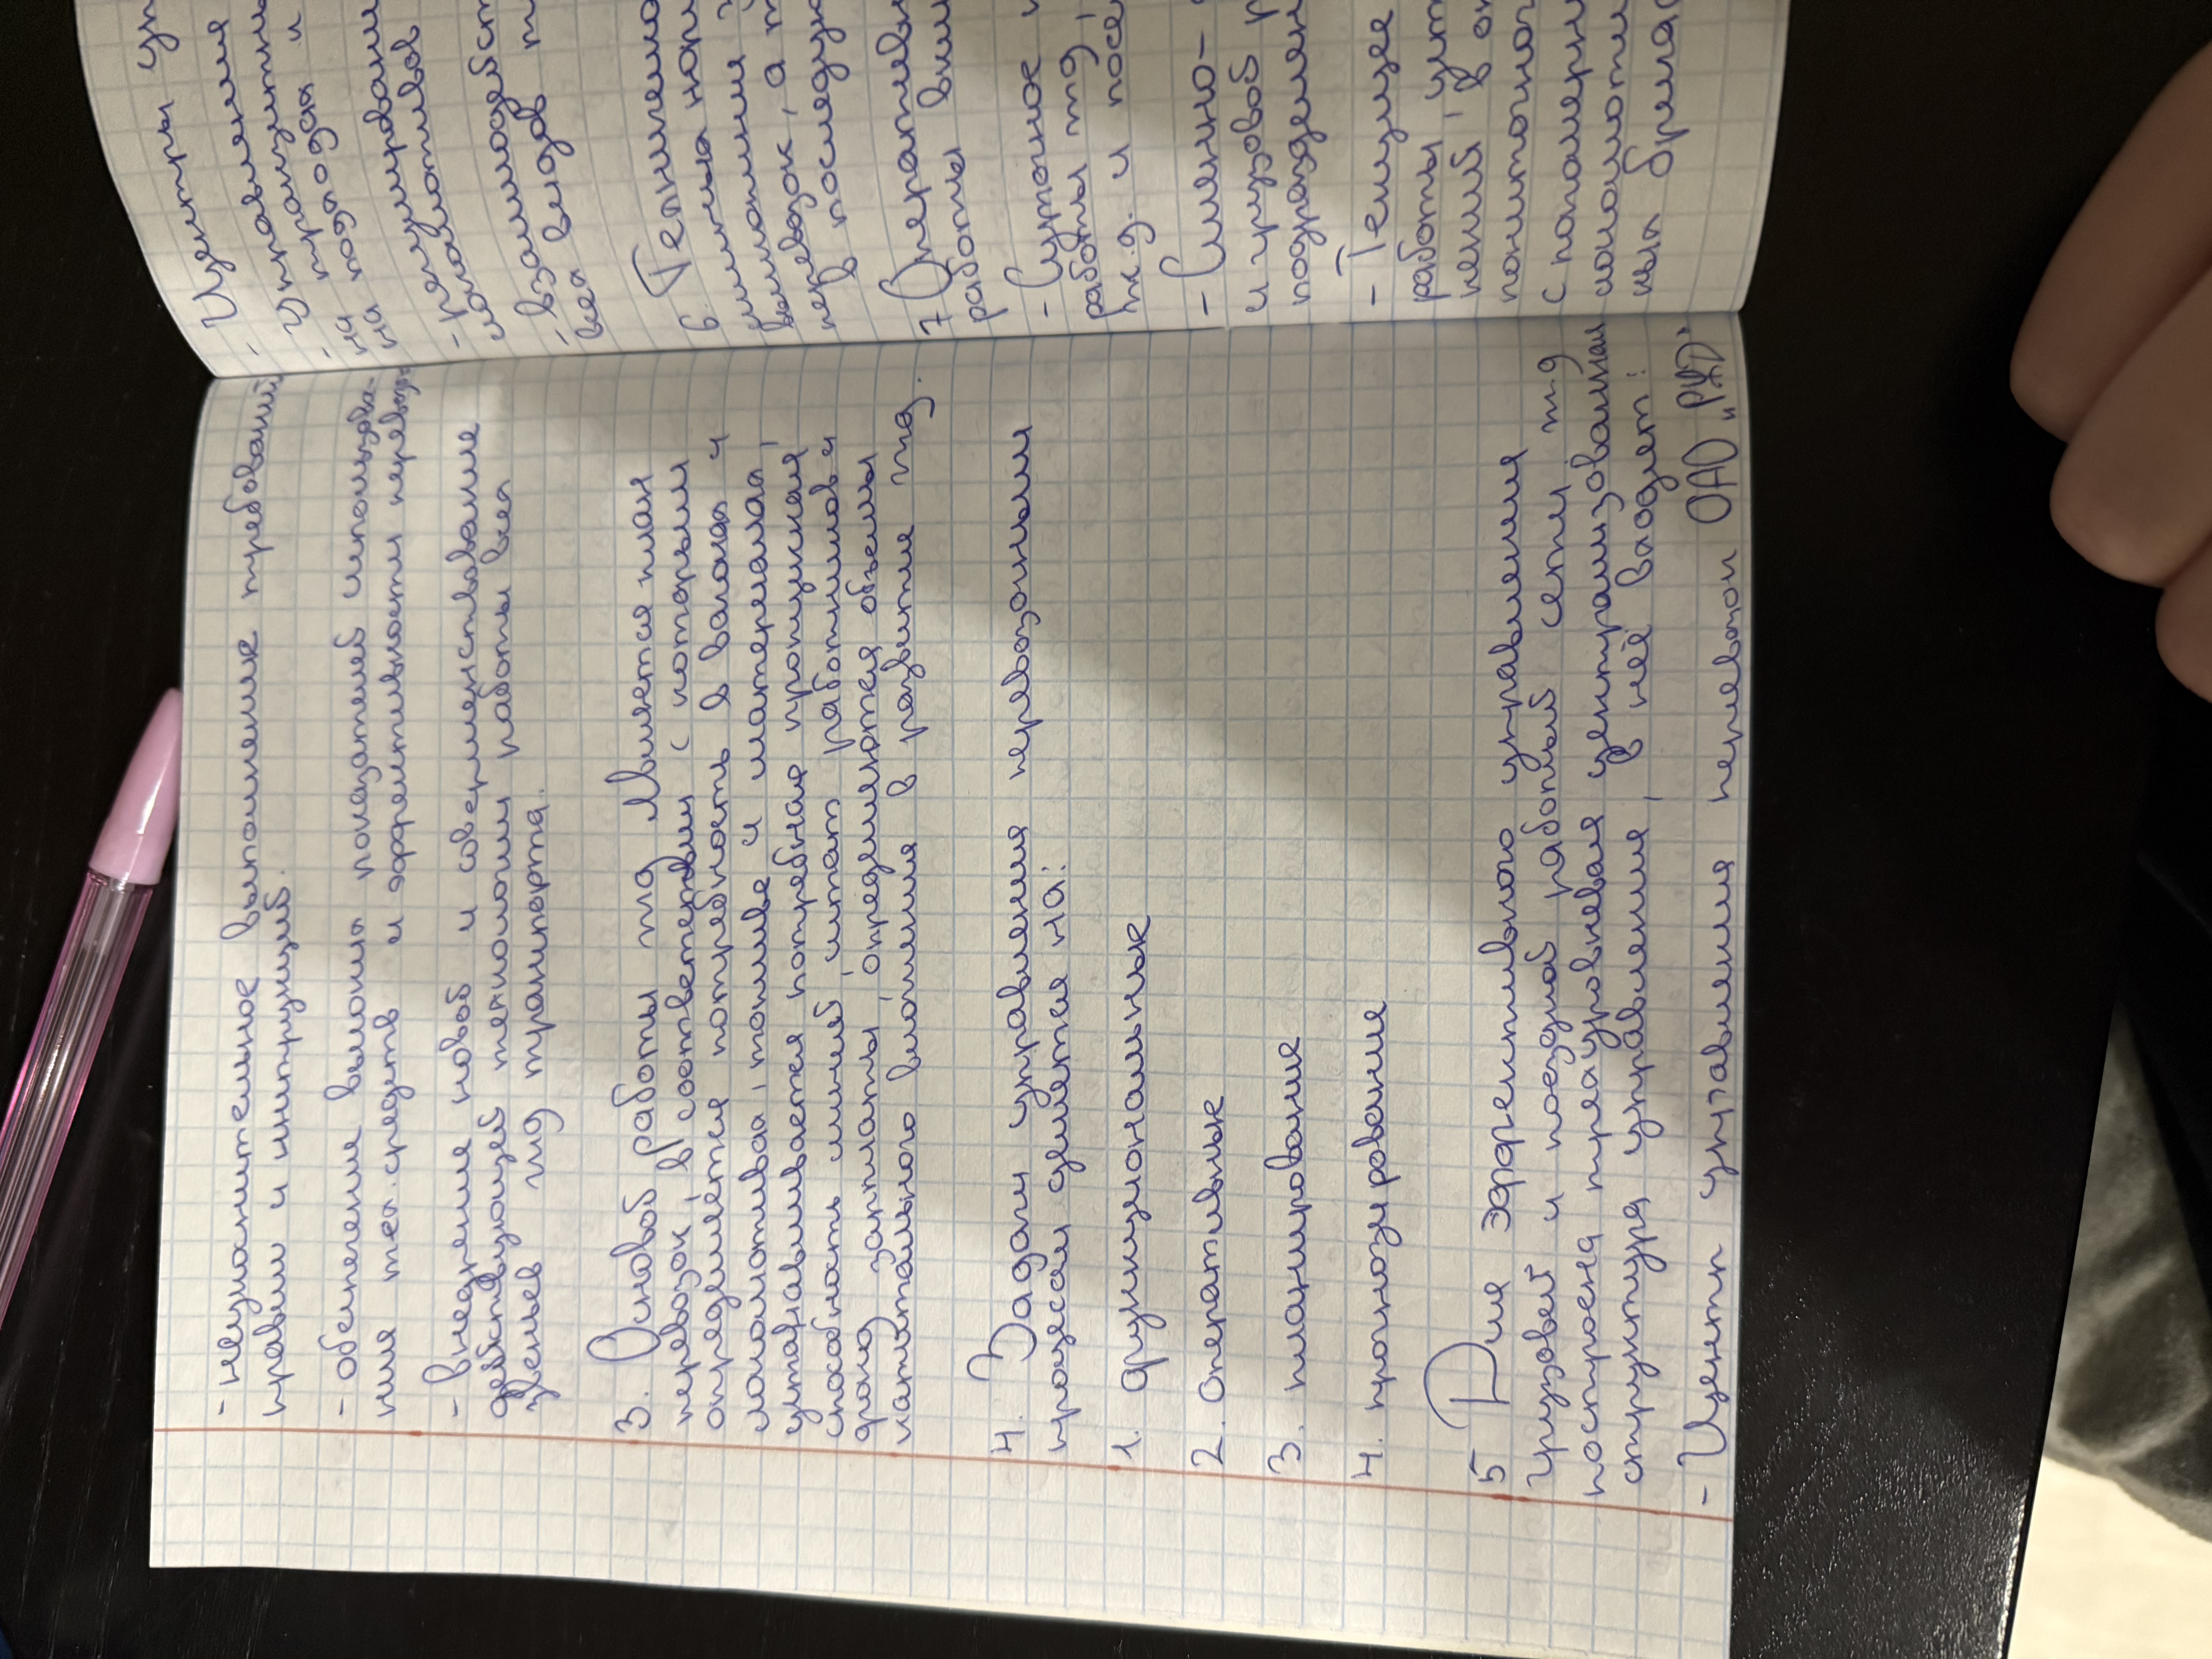 - неукоснительное выполнение требований
правил и инструкций.
- обеспечение высоких показателей использова-
ния тех. средств и эффективности перевозок
- внедрение новой и совершенствование
действующей технологии работы всех
звеньев жд транспорта.
3. Основой работы жд является план
перевозок, в соответствии с которым
определяется потребность в вагонах и
локомотивах, топливе и материалах,
устанавливается потребная пропускная
способность линий, штат работников и
фонд зарплаты, определяются объемы
капитального вложения в развитие жд.
4. Задачи управления перевозочным
процессом делятся на:
1. функциональные
2. оперативные
3. планирование
4. прогнозирование
5 Для эффективного управления
грузовой и поездной работой сети жд
построена трехуровневая централизованная
структура управления, в неё входят:
- Центр управления перевозок ОАО "РЖД"
Центры уп
- Управления
- на подходах и
на
- регулировани
локомотивов
- взаимодейст
всех видов т
6. Технич
перевозок, а т
в последую
7 Оперативн
работы
- Суточное
работы жд,
и посе
- Сменно-
и грузовой р
подразделен
- Текущее
работы,